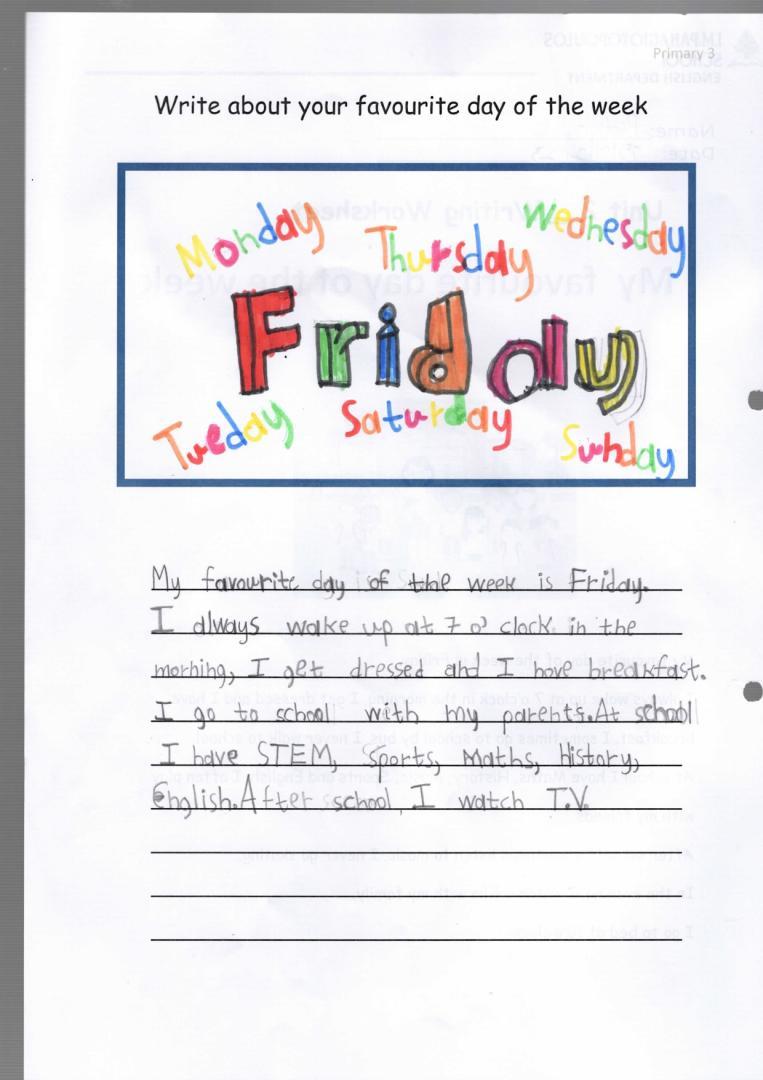 Primary 3
Write about your favourite day of the week
Monday Thursday Wednesday
Friday
Tueday Saturday Sunday
My favourite day is of the week is Friday.
I always wake up at 7 o' clock in the
morning, I get dressed and I have breakfast.
I go to school with my parents.At school
I have STEM, Sports, Maths, History,
English.After school, I watch T.V.